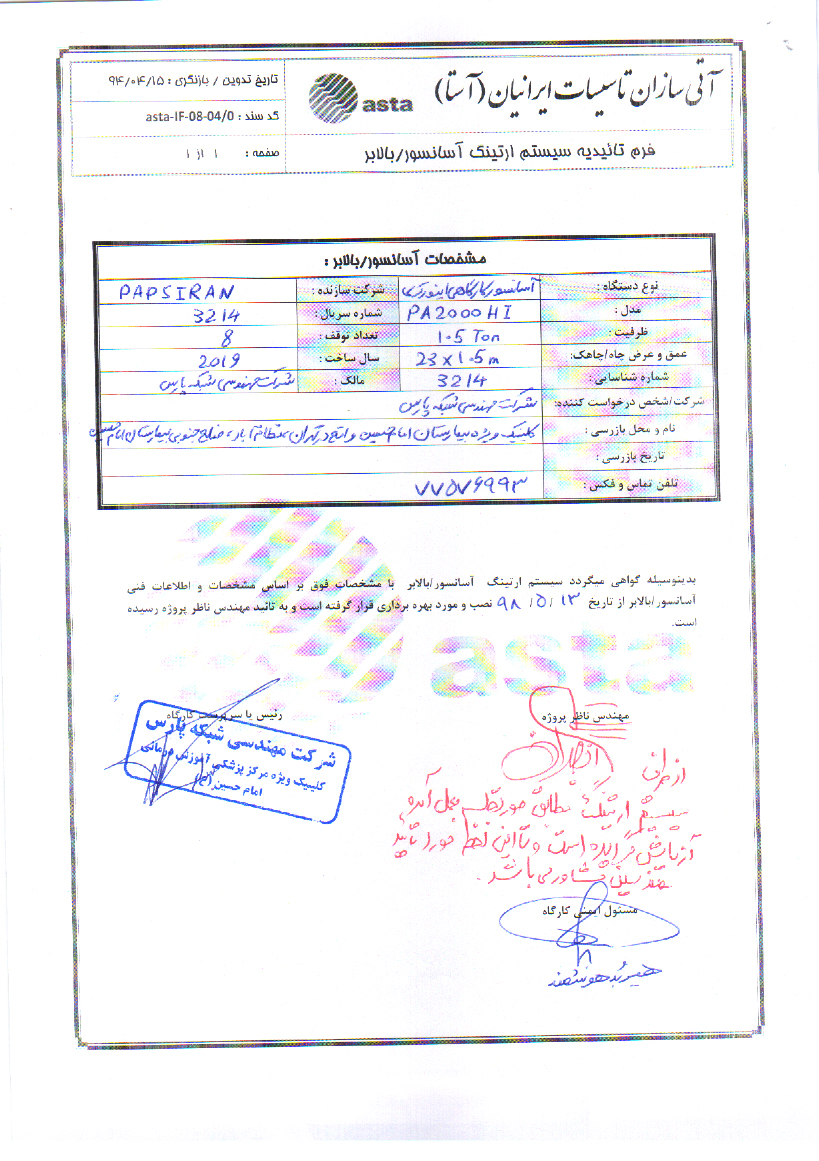 آتی سازان تاسیسات ایرانیان (آستا)
asta
تاریخ تدوین / بازنگری : ۹۴/۰۴/۱۵
کد سند : asta-IF-08-04/0
صفحه : ۱ از ۱
فرم تائیدیه سیستم ارتینگ آسانسور/بالابر
مشخصات آسانسور/بالابر :
نوع دستگاه : آسانسور کارگاهی شرکت سازنده : PAPSIRAN
مدل : PA2000HI شماره سریال : 3214
ظرفیت : 1.5 Ton تعداد توقف : 8
عمق و عرض چاه/چاهک: 23 x 1.5 m سال ساخت : 2019
شماره شناسایی : 3214 مالک : شرکت مهندسی شبکه پارس
شرکت/شخص درخواست کننده: شرکت مهندسی شبکه پارس
نام و محل بازرسی : کلینیک ویژه بیمارستان امام حسین واقع در تهران، نظام آباد، ضلع جنوبی بیمارستان امام حسین
تاریخ بازرسی :
تلفن تماس و فکس : ۷۷۵۷۶۹۹۳
بدینوسیله گواهی میگردد سیستم ارتینگ آسانسور/بالابر با مشخصات فوق بر اساس مشخصات و اطلاعات فنی
آسانسور/بالابر از تاریخ ۹۸/۵/۱۳ نصب و مورد بهره برداری قرار گرفته است و به تائید مهندس ناظر پروژه رسیده
است.
مهندس ناظر پروژه
رئیس یا سرپرست کارگاه
شرکت مهندسی شبکه پارس
کلینیک ویژه مرکز پزشکی آموزش درمانی
امام حسین (ع)
از طرف
سیستم ارتینگ مطابق بعمل آمده
آزمایش است و تا این لحظه مورد تأیید
می باشد.
مسئول ایمنی کارگاه
هیربد هوشمند
asta